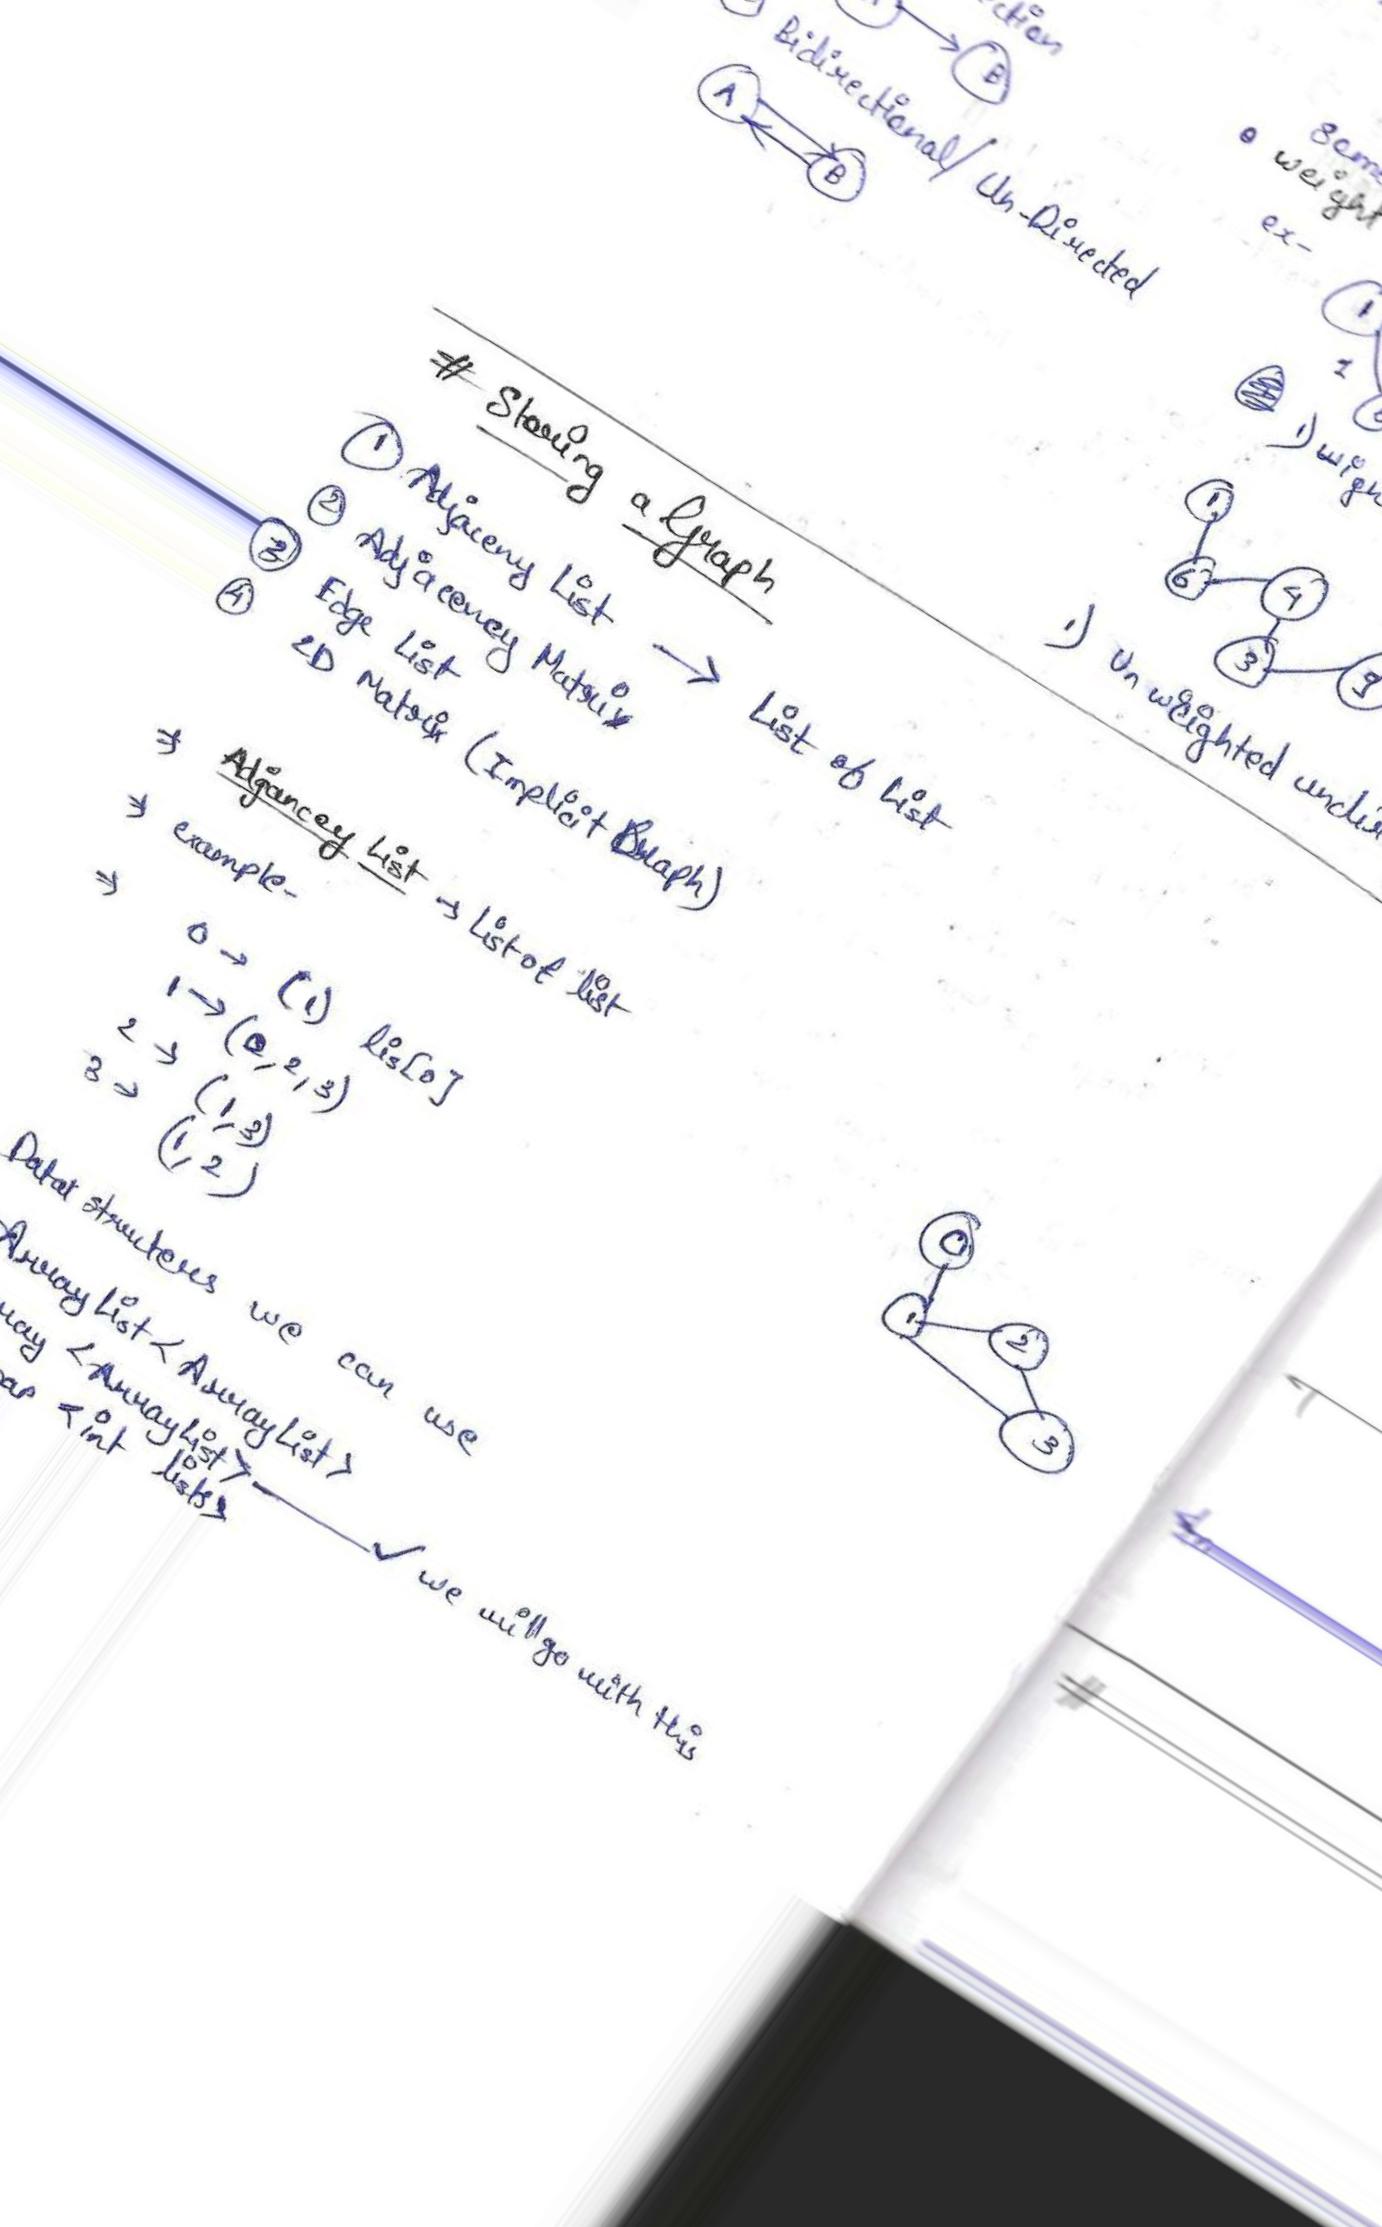 A
B
Bidirectional/Un-Directed
A
B
weight
ex-
1
1)
1
6
4
3
1) Un weighted
# Storing a Graph
1 Adjaceny List → List of List
2 Adjacency Matrix
3 Edge List
4 2D Matrix (Implicit Graph)
⇒ Adjancey List → List of list
⇒ example-
⇒
0 → (1) lis[0]
1 → (0, 2, 3)
2 → (1, 3)
3 → (1, 2)
0
1
2
3
we can use
ArrayList<ArrayList>
<ArrayList> ✓ we will go with this
<int